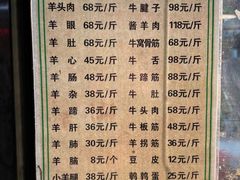 羊头肉 68元/斤 牛腱子 98元/斤
羊眼 68元/斤 酱羊肉 118元/斤
羊肚 68元/斤 牛窝骨筋 98元/斤
羊心 45元/斤 牛舌 98元/斤
羊肠 48元/斤 牛蹄筋 68元/斤
羊杂 38元/斤 牛肚 68元/斤
羊蹄 36元/斤 牛头肉 58元/斤
羊肝 38元/斤 牛板筋 48元/斤
羊肺 30元/斤 羊拐筋 36元/斤
羊脑 8元/个 豆皮 12元/斤
小羊腿 38元/斤 鹌鹑蛋 25元/斤